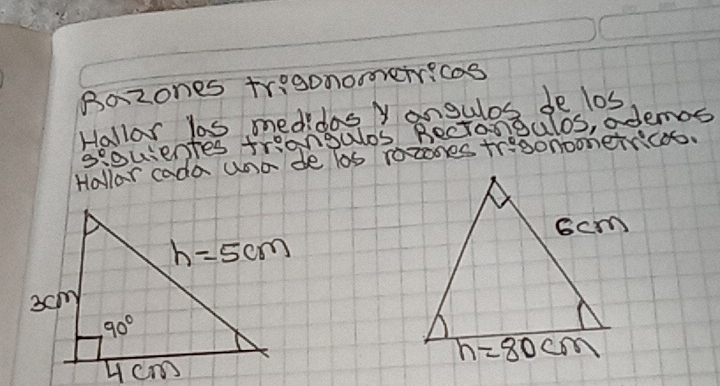 Razones trigonometricas
Hallar las medidas y angulos de los
siguientes triangulos Rectangulos, ademas
Hallar cada una de las razones trigonometricas.
h=5cm
3cm
90°
4cm
6cm
h=80cm